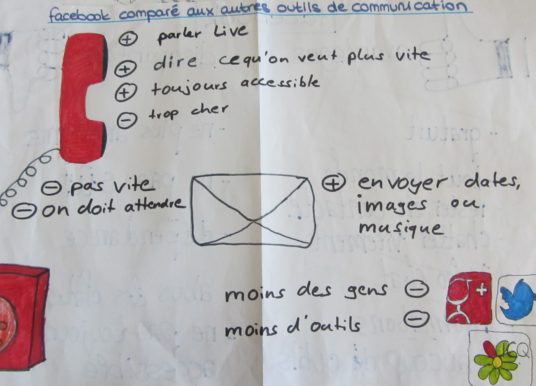 facebook comparé aux autres outils de communication
⊕ parler Live
⊕ dire ce qu'on veut plus vite
⊕ toujours accessible
⊖ trop cher
⊖ pas vite
⊖ on doit attendre
⊕ envoyer dates,
images ou
musique
moins des gens ⊖
moins d'outils ⊖
g+
ICQ